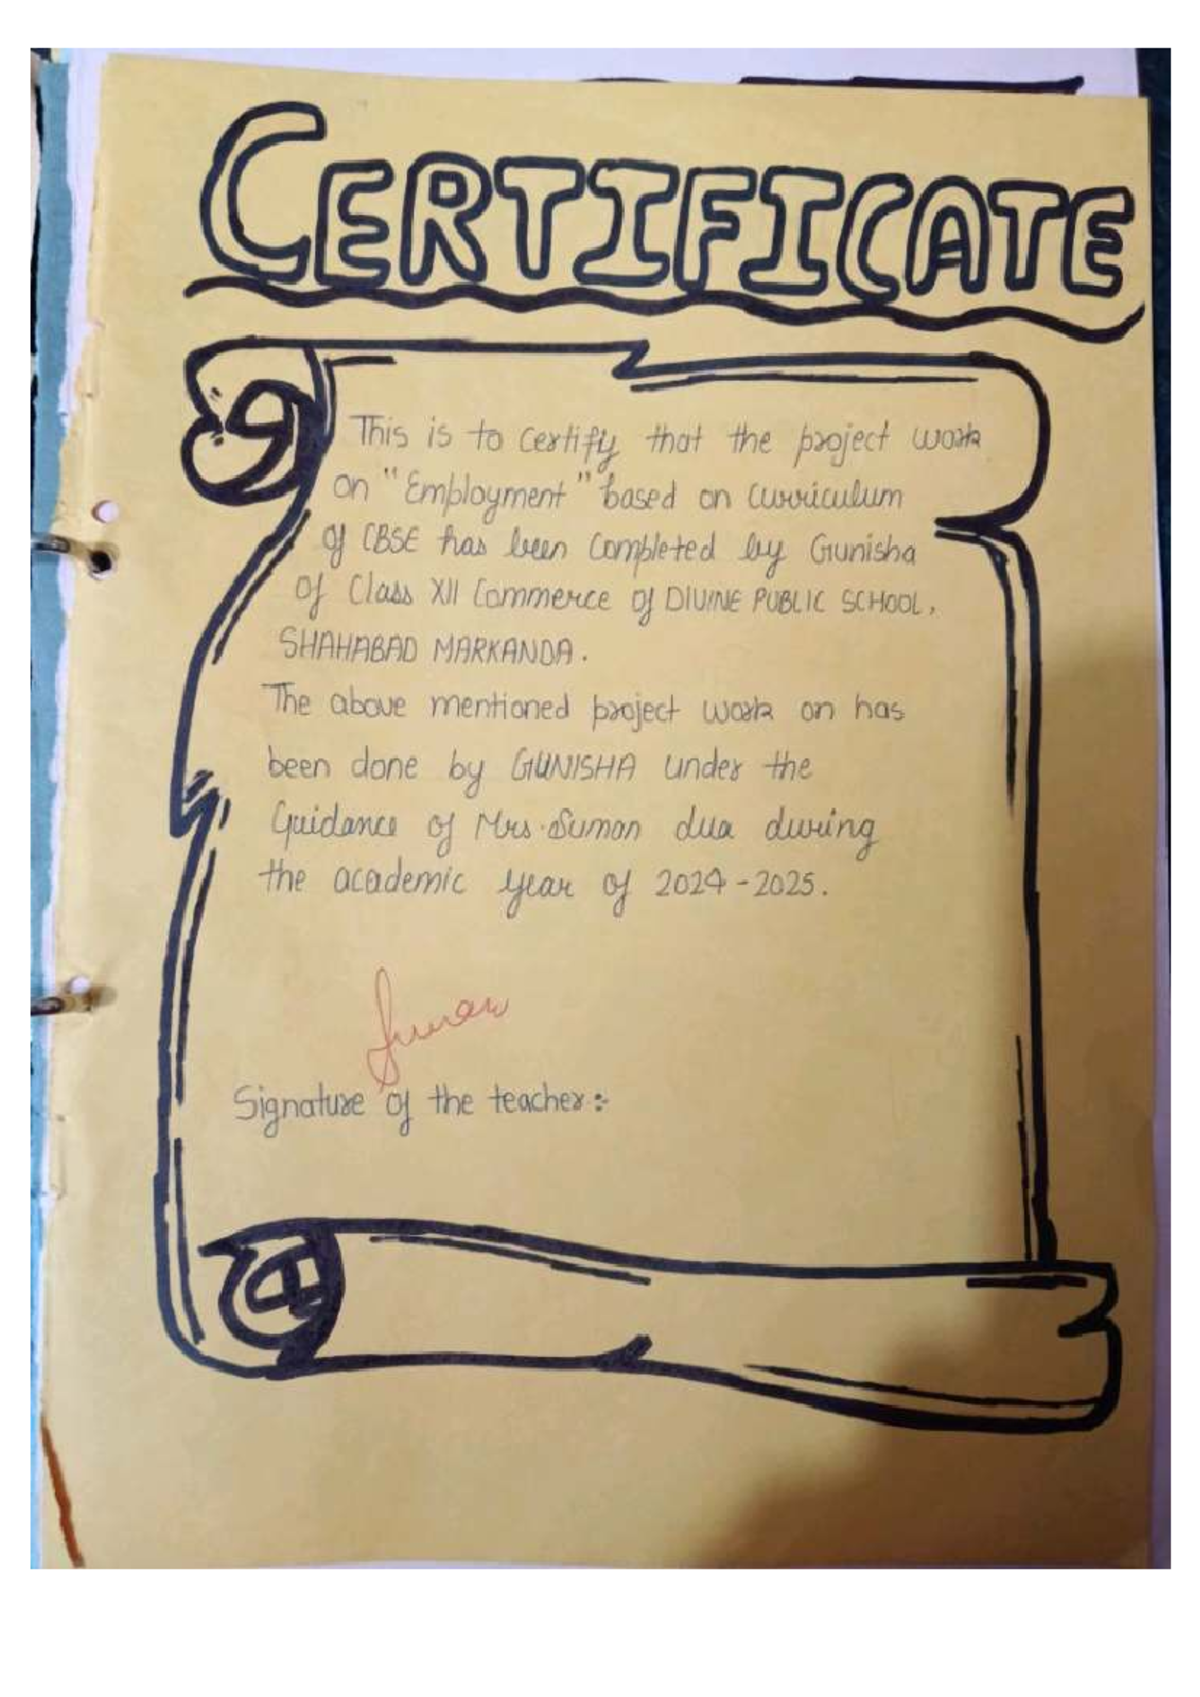 CERTIFICATE
This is to certify that the project work
on "Employment" based on curriculum
of CBSE has been completed by Gunisha
of Class XII Commerce of DIVINE PUBLIC SCHOOL,
SHAHABAD MARKANDA.
The above mentioned project work on has
been done by GUNISHA under the
Guidance of Mrs. Suman dua during
the academic year of 2024-2025.
Suman
Signature of the teacher:-